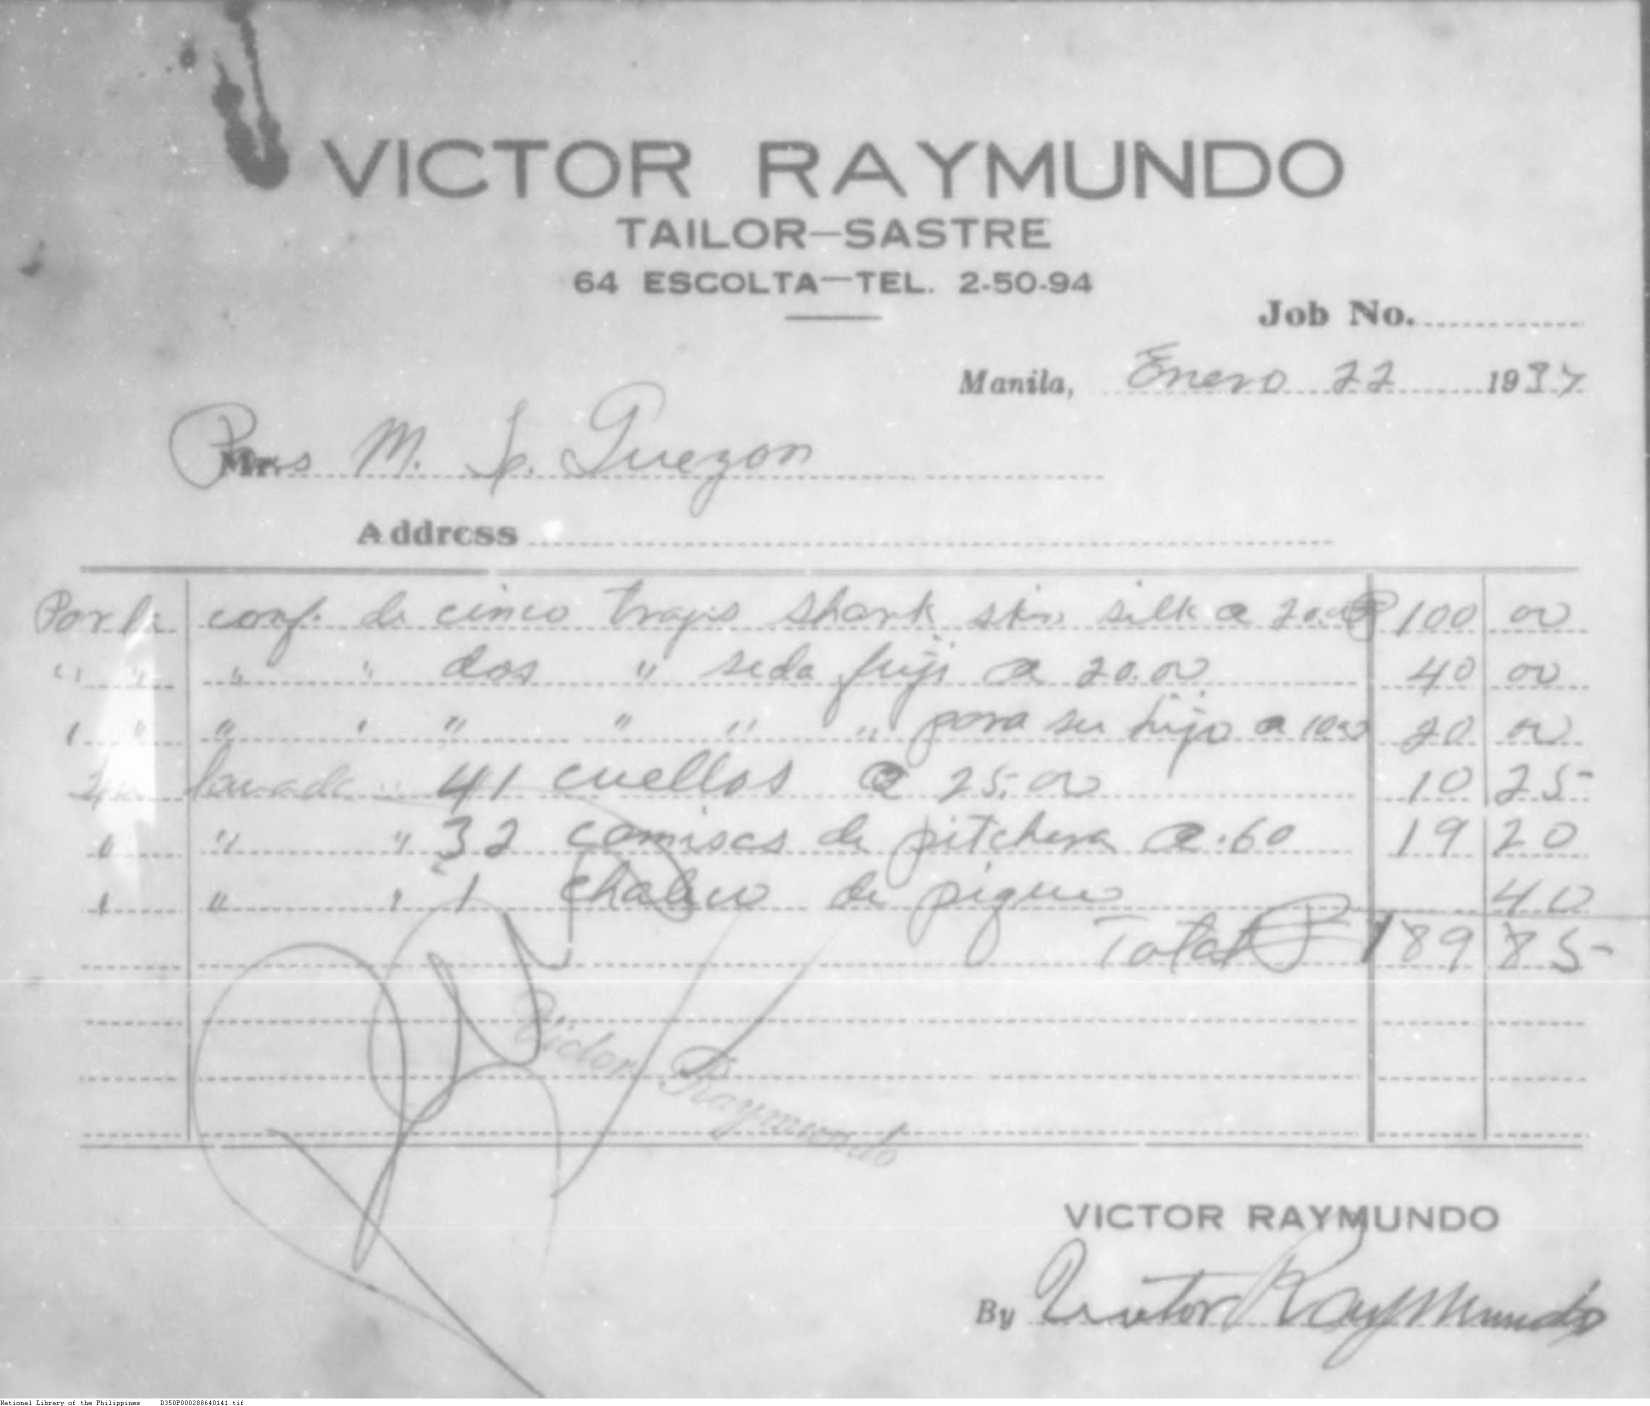 VICTOR RAYMUNDO
TAILOR—SASTRE
64 ESCOLTA—TEL. 2-50-94
Job No.
Manila, Enero 22 1937
Pres M. L. Quezon
Address
Por la conf. de cinco trajes shark skin silk a 20.00 ₱ 100 00
" " " " dos " seda fuji a 20.00 40 00
" " " " " " " " para su hijo a 10.00 20 00
lavado " 41 cuellos a 25.00 10 25
" " " 32 camisas de pitchera a .60 19 20
" " " 1 chaleco de pique 40
Total ₱ 189 85
Victor Raymundo
VICTOR RAYMUNDO
By Victor Raymundo
National Library of the Philippines D350P000288640141.tif